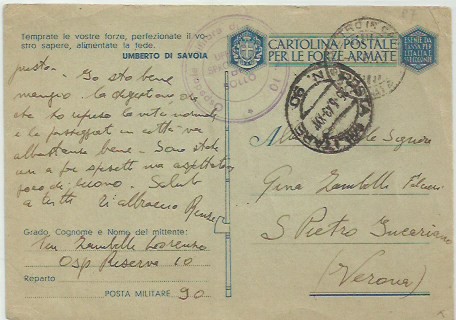 Temprate le vostre forze, perfezionate il vo-
stro sapere, alimentate la fede.
UMBERTO DI SAVOIA
CARTOLINA POSTALE
PER LE FORZE ARMATE
ESENTE DA
TASSA PER
L'ITALIA E
presto. Io sto bene
mangio. La digestione
che ho ripreso la vita normale
e la passeggiata in città va
abbastanza bene. Sono stato
a
di buono. Saluti
a tutti ti abbraccio Renzo
Grado, Cognome e Nome del mittente:
Ten Zambelli Lorenzo
Osp Riserva 10
Reparto
POSTA MILITARE 90
POSTA MILITARE N. 90
BOLLO
10
Signora
Gina Zambelli
S. Pietro Incariano
(Verona)